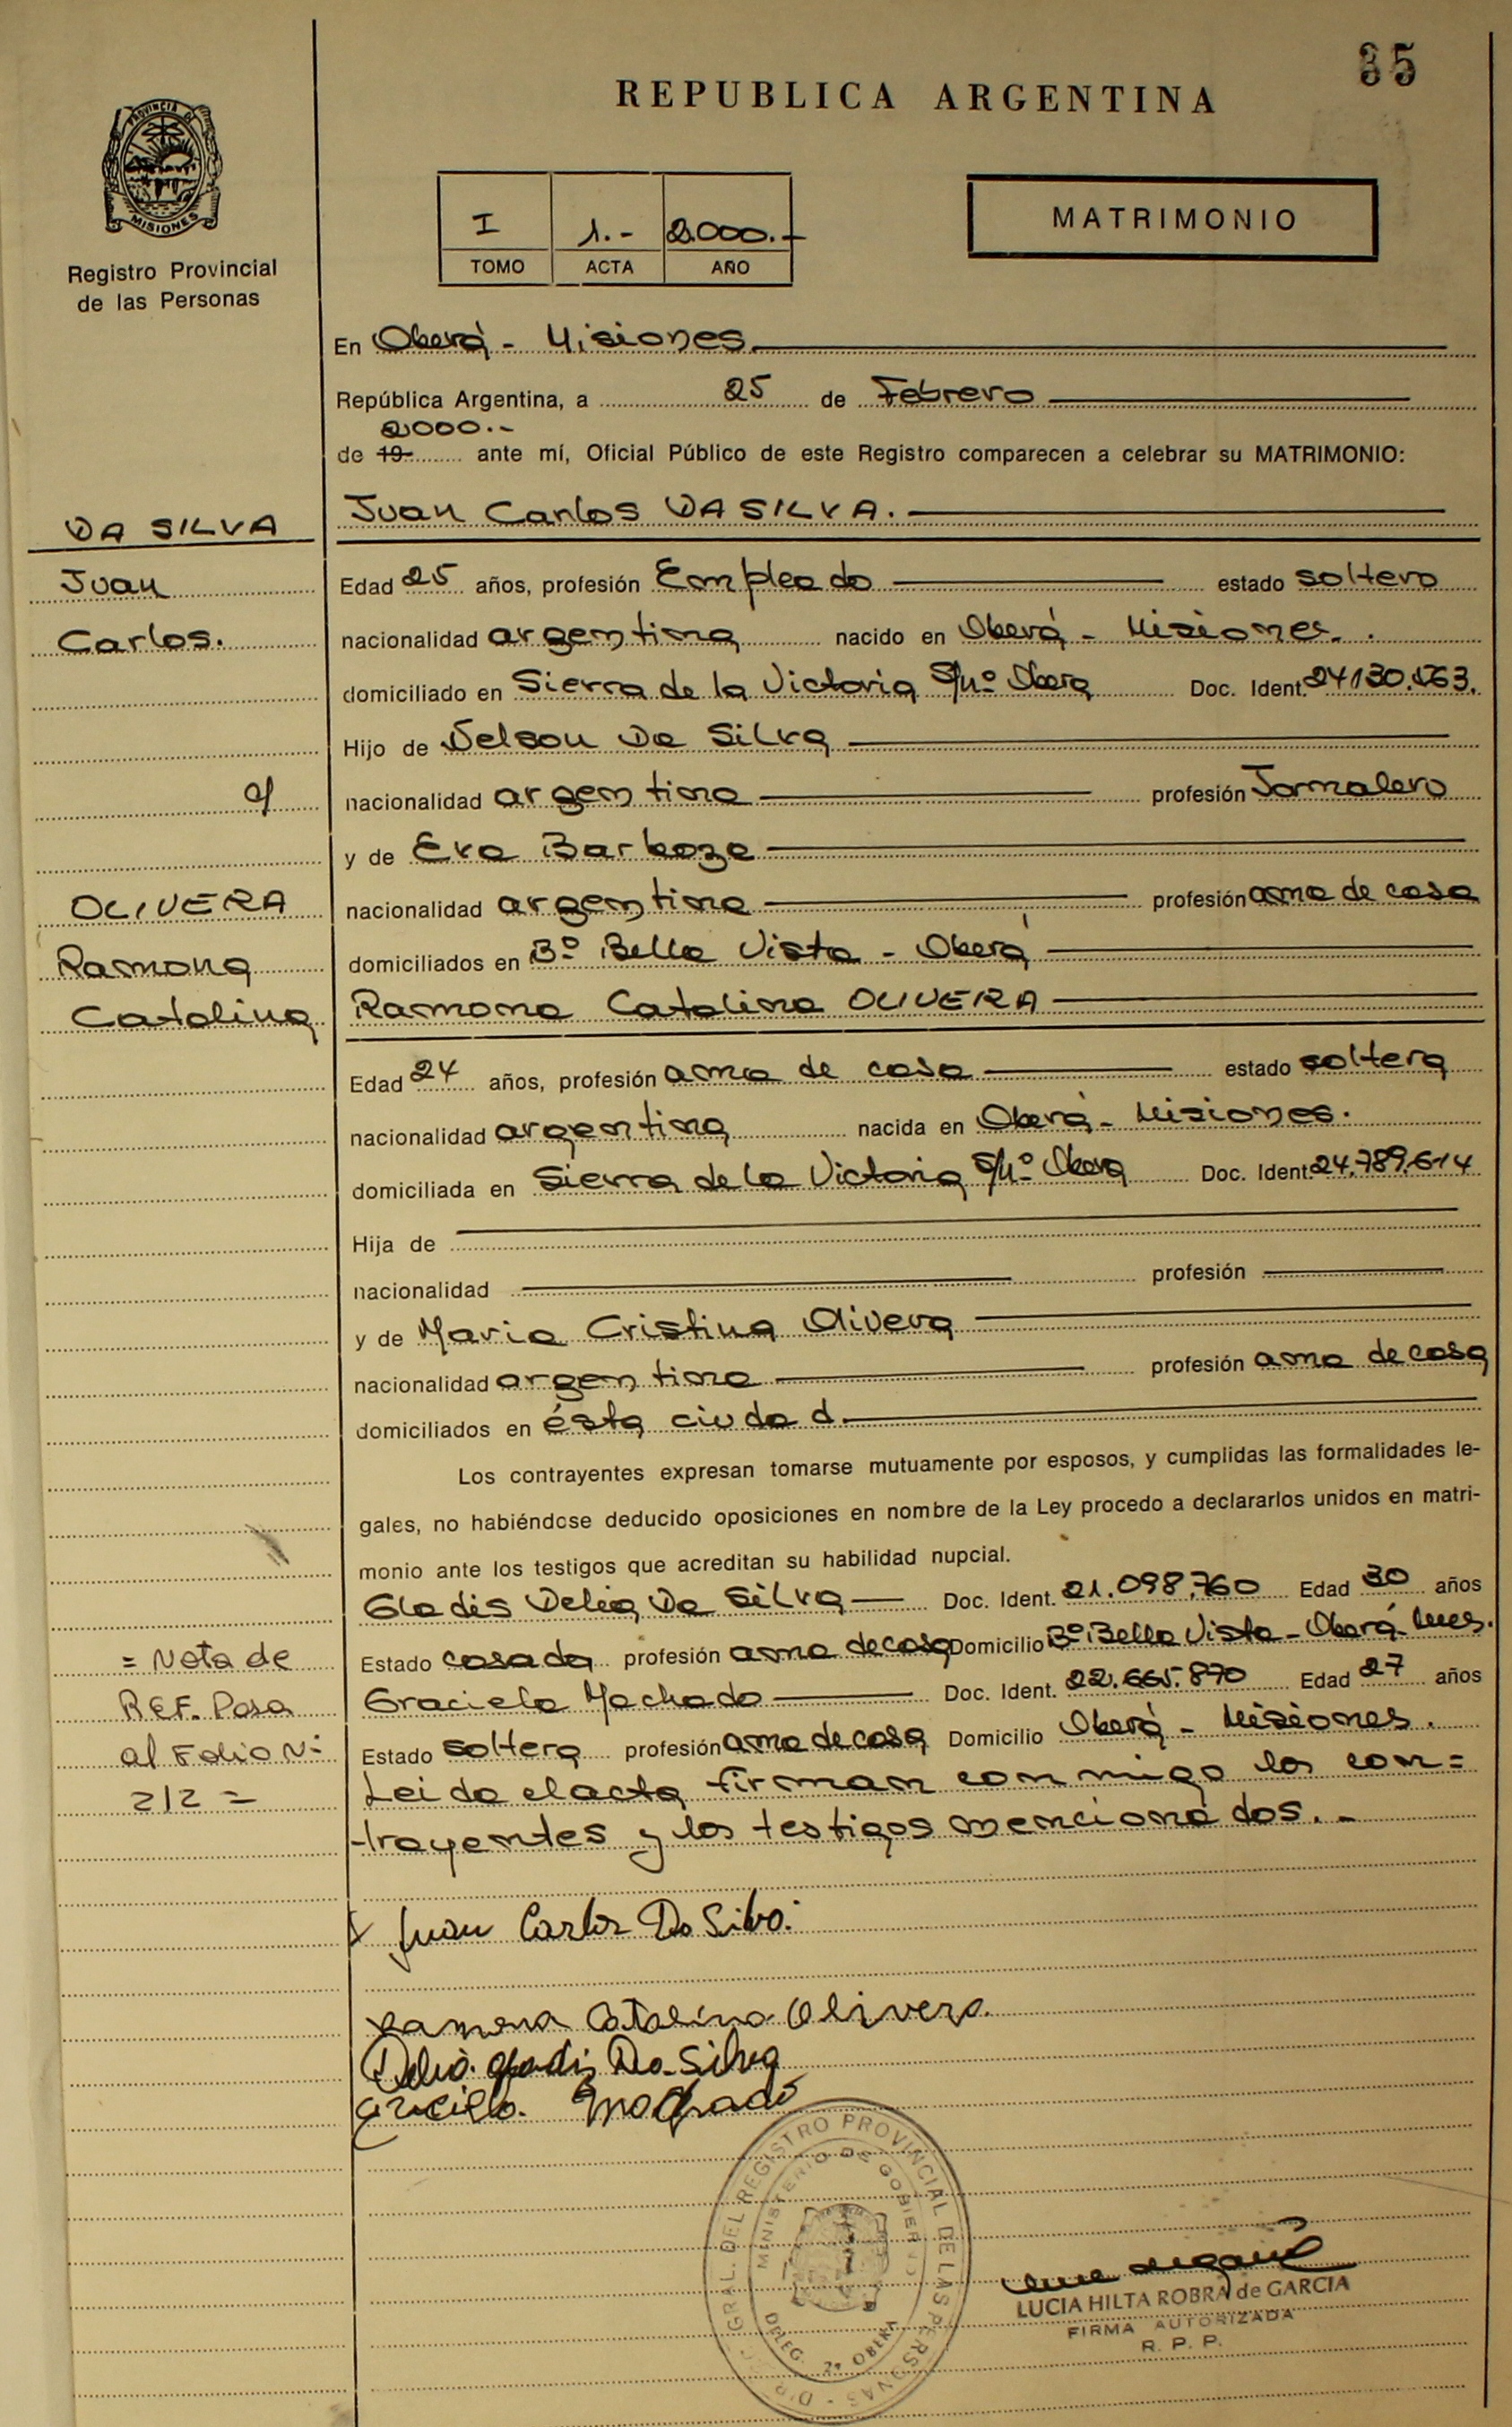 35
REPUBLICA ARGENTINA
PROVINCIA DE
MISIONES
Registro Provincial
de las Personas
I 1.- 2.000.-
TOMO ACTA AÑO
MATRIMONIO
En Oberá - Misiones
República Argentina, a 25 de Febrero
2000.-
de 19 ante mí, Oficial Público de este Registro comparecen a celebrar su MATRIMONIO:
DA SILVA
Juan
Carlos.
c/
OLIVERA
Ramona
Catalina
Juan Carlos DA SILVA.
Edad 25 años, profesión Empleado estado soltero
nacionalidad argentina nacido en Oberá - Misiones.
domiciliado en Sierra de la Victoria S/Nº Oberá Doc. Ident. 24130.
Hijo de Nelson Da Silva
nacionalidad argentina profesión Jornalero
y de Eva Barboza
nacionalidad argentina profesión ama de casa
domiciliados en Bº Bella Vista - Oberá
Ramona Catalina OLIVERA
Edad 24 años, profesión ama de casa estado soltera
nacionalidad argentina nacida en Oberá - Misiones.
domiciliada en Sierra de la Victoria S/Nº Oberá Doc. Ident. 24.789.614
Hija de
nacionalidad profesión
y de Maria Cristina Olivera
nacionalidad argentina profesión ama de casa
domiciliados en ésta ciudad.
Los contrayentes expresan tomarse mutuamente por esposos, y cumplidas las formalidades le-
gales, no habiéndose deducido oposiciones en nombre de la Ley procedo a declararlos unidos en matri-
monio ante los testigos que acreditan su habilidad nupcial.
Gladis Delia Da Silva Doc. Ident. 21.098.760 Edad 30 años
Estado casada profesión ama de casa Domicilio Bº Bella Vista - Oberá Mnes.
Graciela Machado Doc. Ident. 22.665.870 Edad 27 años
Estado soltera profesión ama de casa Domicilio Oberá - Misiones.
Leida el acta firman conmigo los con=
trayentes y los testigos mencionados.-
= Nota de
REF. Pasa
al Folio Nº
212 =
Juan Carlos Da Silva
Ramona Catalina Olivera
Delia Gladis Da Silva
Graciela Machado
DIR. GRAL. DEL REGISTRO PROVINCIAL DE LAS PERSONAS
MINISTERIO DE GOBIERNO
DELEG. 2ª OBERA
LUCIA HILTA ROBRA de GARCIA
FIRMA AUTORIZADA
R. P. P.